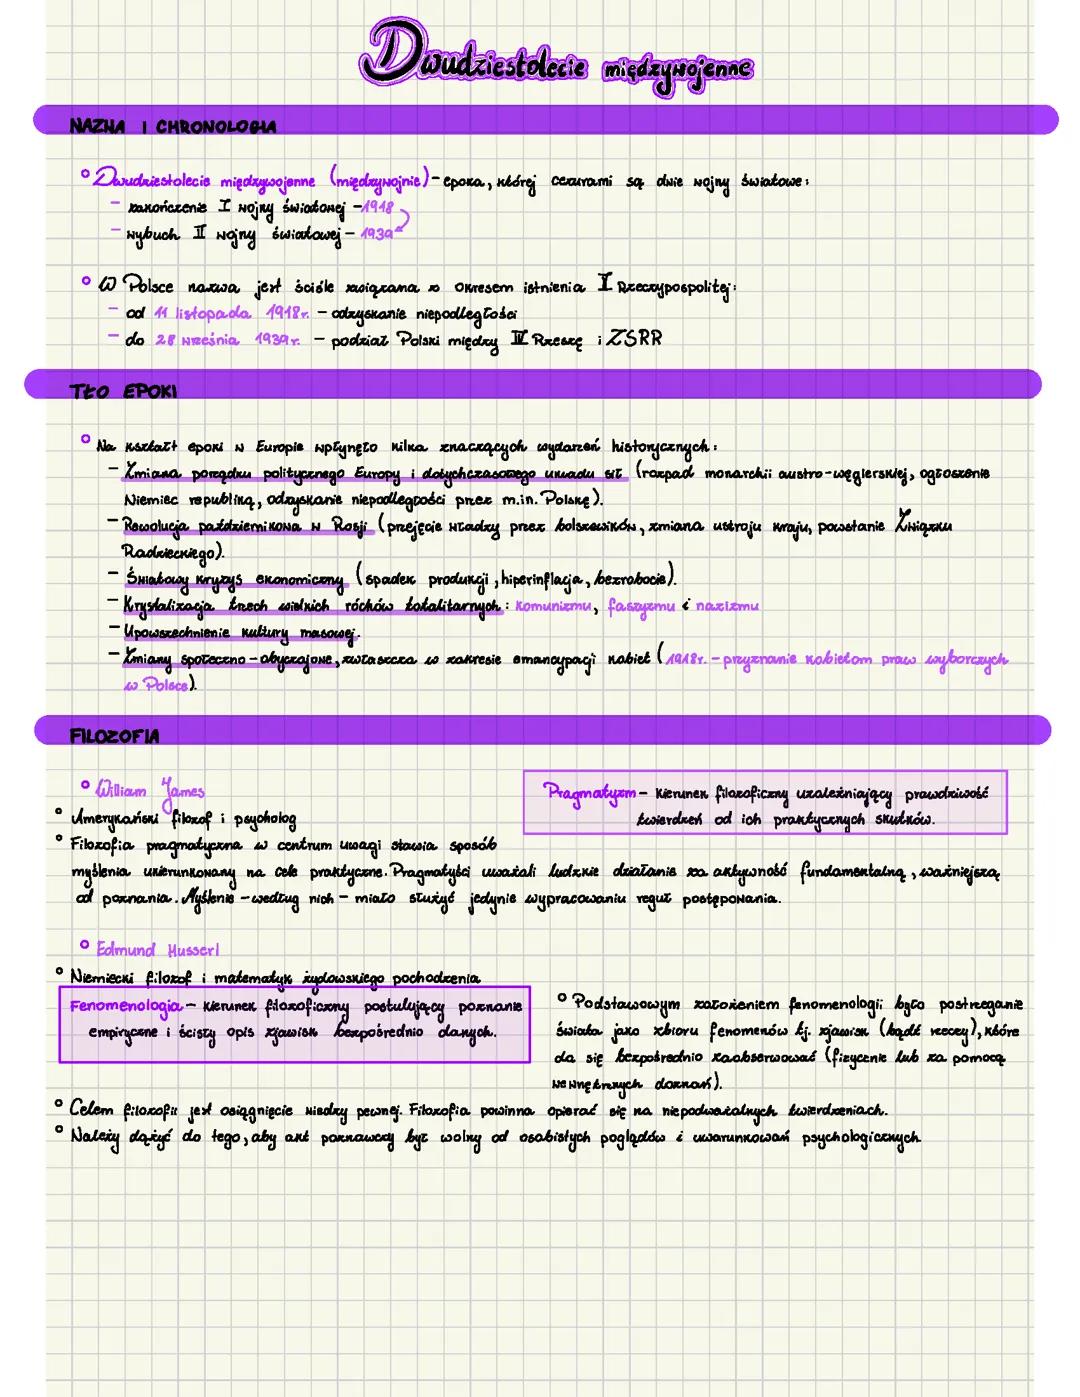 Dwudziestolecie międzywojenne
NAZWA I CHRONOLOGIA
° Dwudziestolecie międzywojenne (międzywojnie) - epoka, której cezurami są dwie wojny światowe:
- zakończenie I wojny światowej - 1918
- wybuch II wojny światowej - 1939
° W Polsce nazwa jest ściśle związana z okresem istnienia II Rzeczypospolitej:
- od 11 listopada 1918r. - odzyskanie niepodległości
- do 28 września 1939r. - podział Polski między III Rzeszę i ZSRR
TŁO EPOKI
° Na kształt epoki w Europie wpłynęło kilka znaczących wydarzeń historycznych:
- Zmiana porządku politycznego Europy i dotychczasowego układu sił (rozpad monarchii austro-węgierskiej, ogłoszenie
Niemiec republiką, odzyskanie niepodległości przez m.in. Polskę).
- Rewolucja październikowa w Rosji (przejęcie władzy przez bolszewików, zmiana ustroju kraju, powstanie Związku
Radzieckiego).
- Światowy kryzys ekonomiczny (spadek produkcji, hiperinflacja, bezrobocie).
- Krystalizacja trzech wielkich róchów totalitarnych: komunizmu, faszyzmu i nazizmu
- Upowszechnienie kultury masowej.
- Zmiany społeczno-obyczajowe, zwłaszcza w zakresie emancypacji kobiet (1918r. - przyznanie kobietom praw wyborczych
w Polsce).
FILOZOFIA
° William James
° Amerykański filozof i psycholog
Pragmatyzm - kierunek filozoficzny uzależniający prawdziwość
twierdzeń od ich praktycznych skutków.
° Filozofia pragmatyczna w centrum uwagi stawia sposób
myślenia ukierunkowany na cele praktyczne. Pragmatyści uważali ludzkie działanie za aktywność fundamentalną, ważniejszą
od poznania. Myślenie - według nich - miało służyć jedynie wypracowaniu reguł postępowania.
° Edmund Husserl
° Niemiecki filozof i matematyk żydowskiego pochodzenia
Fenomenologia - kierunek filozoficzny postulujący poznanie
empiryczne i ścisły opis zjawisk bezpośrednio danych.
° Podstawowym założeniem fenomenologii było postrzeganie
świata jako zbioru fenomenów tj. zjawisk (bądź rzeczy), które
da się bezpośrednio zaobserwować (fizycznie lub za pomocą
wewnętrznych doznań).
° Celem filozofii jest osiągnięcie wiedzy pewnej. Filozofia powinna opierać się na niepodważalnych twierdzeniach.
° Należy dążyć do tego, aby akt poznawczy był wolny od osobistych poglądów i uwarunkowań psychologicznych